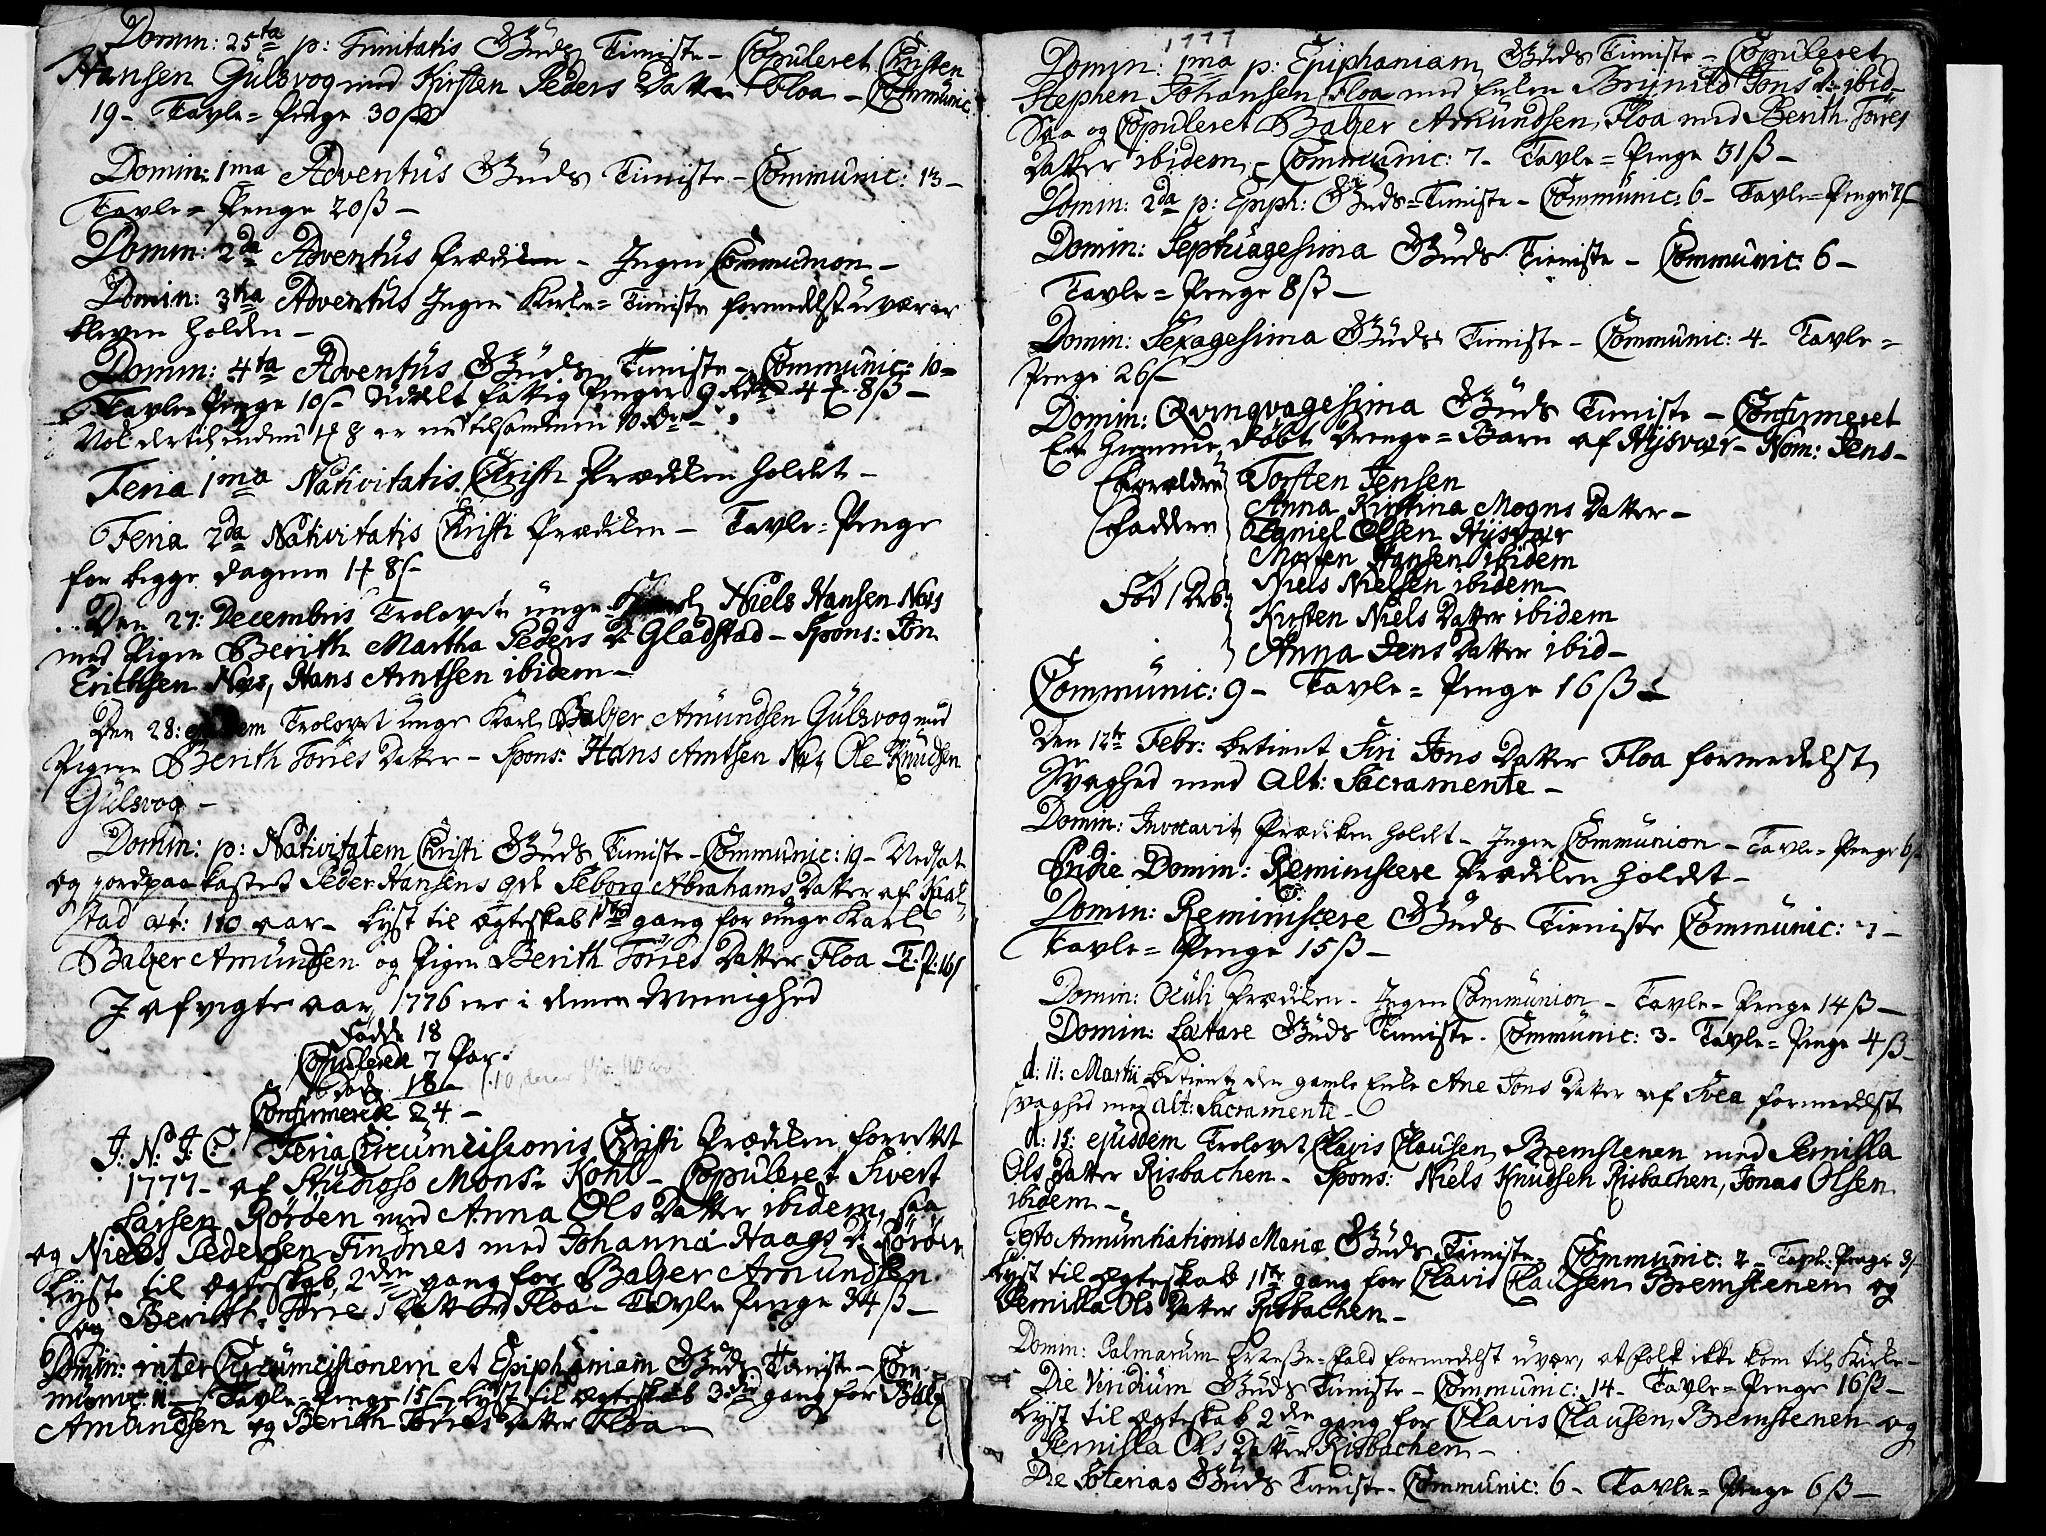 Domin: 25ta p: Trinitatis Guds Tieniste – Copuleret Christen
Hansen Gülsvog med Kirsten Peders Datter Floa – Communic:
19 – Tavle-Penge 30 ß
Domin: 1ma Adventûs Guds Tieniste – Communic: 13 –
Tavle-Penge 20 ß –
Domin: 2da Adventûs Prædiken – Ingen Communion –
Domin: 3tia Adventûs Ingen Kirke-Tieniste formedelst uvær er
bleven holden –
Domin: 4ta Adventûs Guds Tieniste – Communic: 10 –
Tavle-Penge 10 ß Uddelt fattig Penger 9 Rdr 4 ß 8 ß –
Feria 1ma Nativitatis Christi Prædiken holdet –
Feria 2da Nativitatis Christi Prædiken – Tavle-Penge
for begge dagene 1 ƒ 8 ß –
Den 27: Decembris Trolovet unge Karl Niels Hansen Næs
med Pigen Berith Martha Peders D: Gladstad – Spons: Jon
Erichsen Næs, Hans Arntsen ibidem –
Den 28: ejusdem Trolovet unge Karl Balzer Amundsen Gülsvog med
Pigen Berith Torres Datter – Spons: Hans Arntsen Næs, Ole Knudsen
Gülsvog –
Domin: p: Nativitatem Christi Guds Tieniste – Communic: 19 – Nedsat
og jordpaakastet Peder Hansens Seborg Abrahams Datter af
stad æt: 110 aar – Lyst til ægteskab 1ste gang for unge Karl
Balzer Amundsen og Pigen Berith Torres Datter Floa – T: P: 16 ß
I afvigte aar 1776 ere i denne Meenighed
Fødde 18
Copulerede 7 Par
Døde 18
Confirmerede 24 –
J: N: J: C: Feria Circumcisionis Christi Prædiken forrettet
1777 – af Studioso Monsr Kohl – Copuleret Sivert
Larsen Röröen med Anna Ols Datter ibidem, saa
og Niels Pedersen Tindnes med Johanna Haags D: Röröen
Lyst til ægteskab 2den gang for Balzer Amundsen
og Berith Torres Datter Floa – Tavle Penge 34 ß –
Domin: inter Circumcisionem et Epiphaniam Guds Tieniste – Com-
munic: 11 – Tavle-Penge 15 ß, Lyst til ægteskab 3die gang for Balz:
Amundsen og Berith Torres Datter Floa –
1777
Domin: 1ma p: Epiphaniam Guds Tieniste – Copuleret
Stephen Johansen Floa med Enken Brynild Jons D: ibid –
Saa og Copuleret Balzer Amundsen Floa med Berith Torres
Datter ibidem – Communic: 7 – Tavle-Penge 31 ß –
Domin: 2da p: Epiph: Guds-Tieniste – Communic: 6 – Tavle-Penge
Domin: Septuagesima Guds Tieniste – Communic: 6 –
Tavle-Penge 8 ß –
Domin: Sexagesima Guds Tieniste – Communic: 4 – Tavle-
Penge 26 ß –
Domin: Qvinqvagesima Guds Tieniste – Confirmeret
Et hiemme døbt Drenge-Barn af Hysvær – Nom: Jens –
Forældre Torsten Jensen
Anna Kirstina Mogns Datter –
Faddere Daniel Olsen Hysvær
Morten Hansen ibidem
Fød 1 Dcb: Niels Nielsen ibidem
Kirsten Niels Datter ibidem
Anna Jens Datter ibid –
Communic: 9 – Tavle-Penge 16 ß –
Den 12te Febr: betient Siri Jons Datter Floa formedelst
Svaghed med Alt: Sacramente –
Domin: Invocavit Prædiken holdt – Ingen Communion – Tavle-Penge 6 ß
Pridie Domin: Reminiscere Prædiken holdt –
Domin: Reminiscere Guds Tieniste Communic: 7 –
Tavle-Penge 15 ß –
Domin: Oculi Prædiken – Ingen Communion – Tavle-Penge 14 ß –
Domin: Lætare Guds Tieniste – Communic: 3 – Tavle-Penge 4 ß –
d: 11: Martii betient den gamle Enke Ane Jons Datter af Svea formedelst
svaghed med Alt: Sacramente –
d: 15: ejusdem Trolovet Clavis Clausen Bremstenen med Pernilla
Ols Datter Risbachen – Spons: Niels Knudsen Risbachen, Jonas Olsen
ibidem –
Festo Annuntiationis Mariæ Guds Tieniste – Communic: 2 – Tavle-Penge 3 ß
Lyst til ægteskab 1ste gang for Clavis Clausen Bremstenen og
Pernilla Ols Datter Risbachen –
Domin: Palmarum Messe-fald formedelst uvær, at folk ikke kom til Kirke –
Die Viridium Guds Tieniste – Communic: 14 – Tavle-Penge 16 ß –
Lyst til ægteskab 2den gang for Clavis Clausen Bremstenen og
Pernilla Ols Datter Risbachen –
Die Soterias Guds Tieniste – Communic: 6 – Tavle-Penge 6 ß –